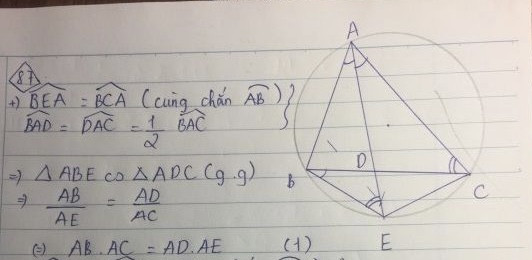 87.
+) \widehat{BEA} = \widehat{BCA} (cùng chắn \widehat{AB})
\widehat{BAD} = \widehat{DAC} = \frac{1}{2} \widehat{BAC}
=> △ ABE ∽ △ ADC (g.g)
=> \frac{AB}{AE} = \frac{AD}{AC}
(=) AB . AC = AD . AE (1)
A
B
D
C
E